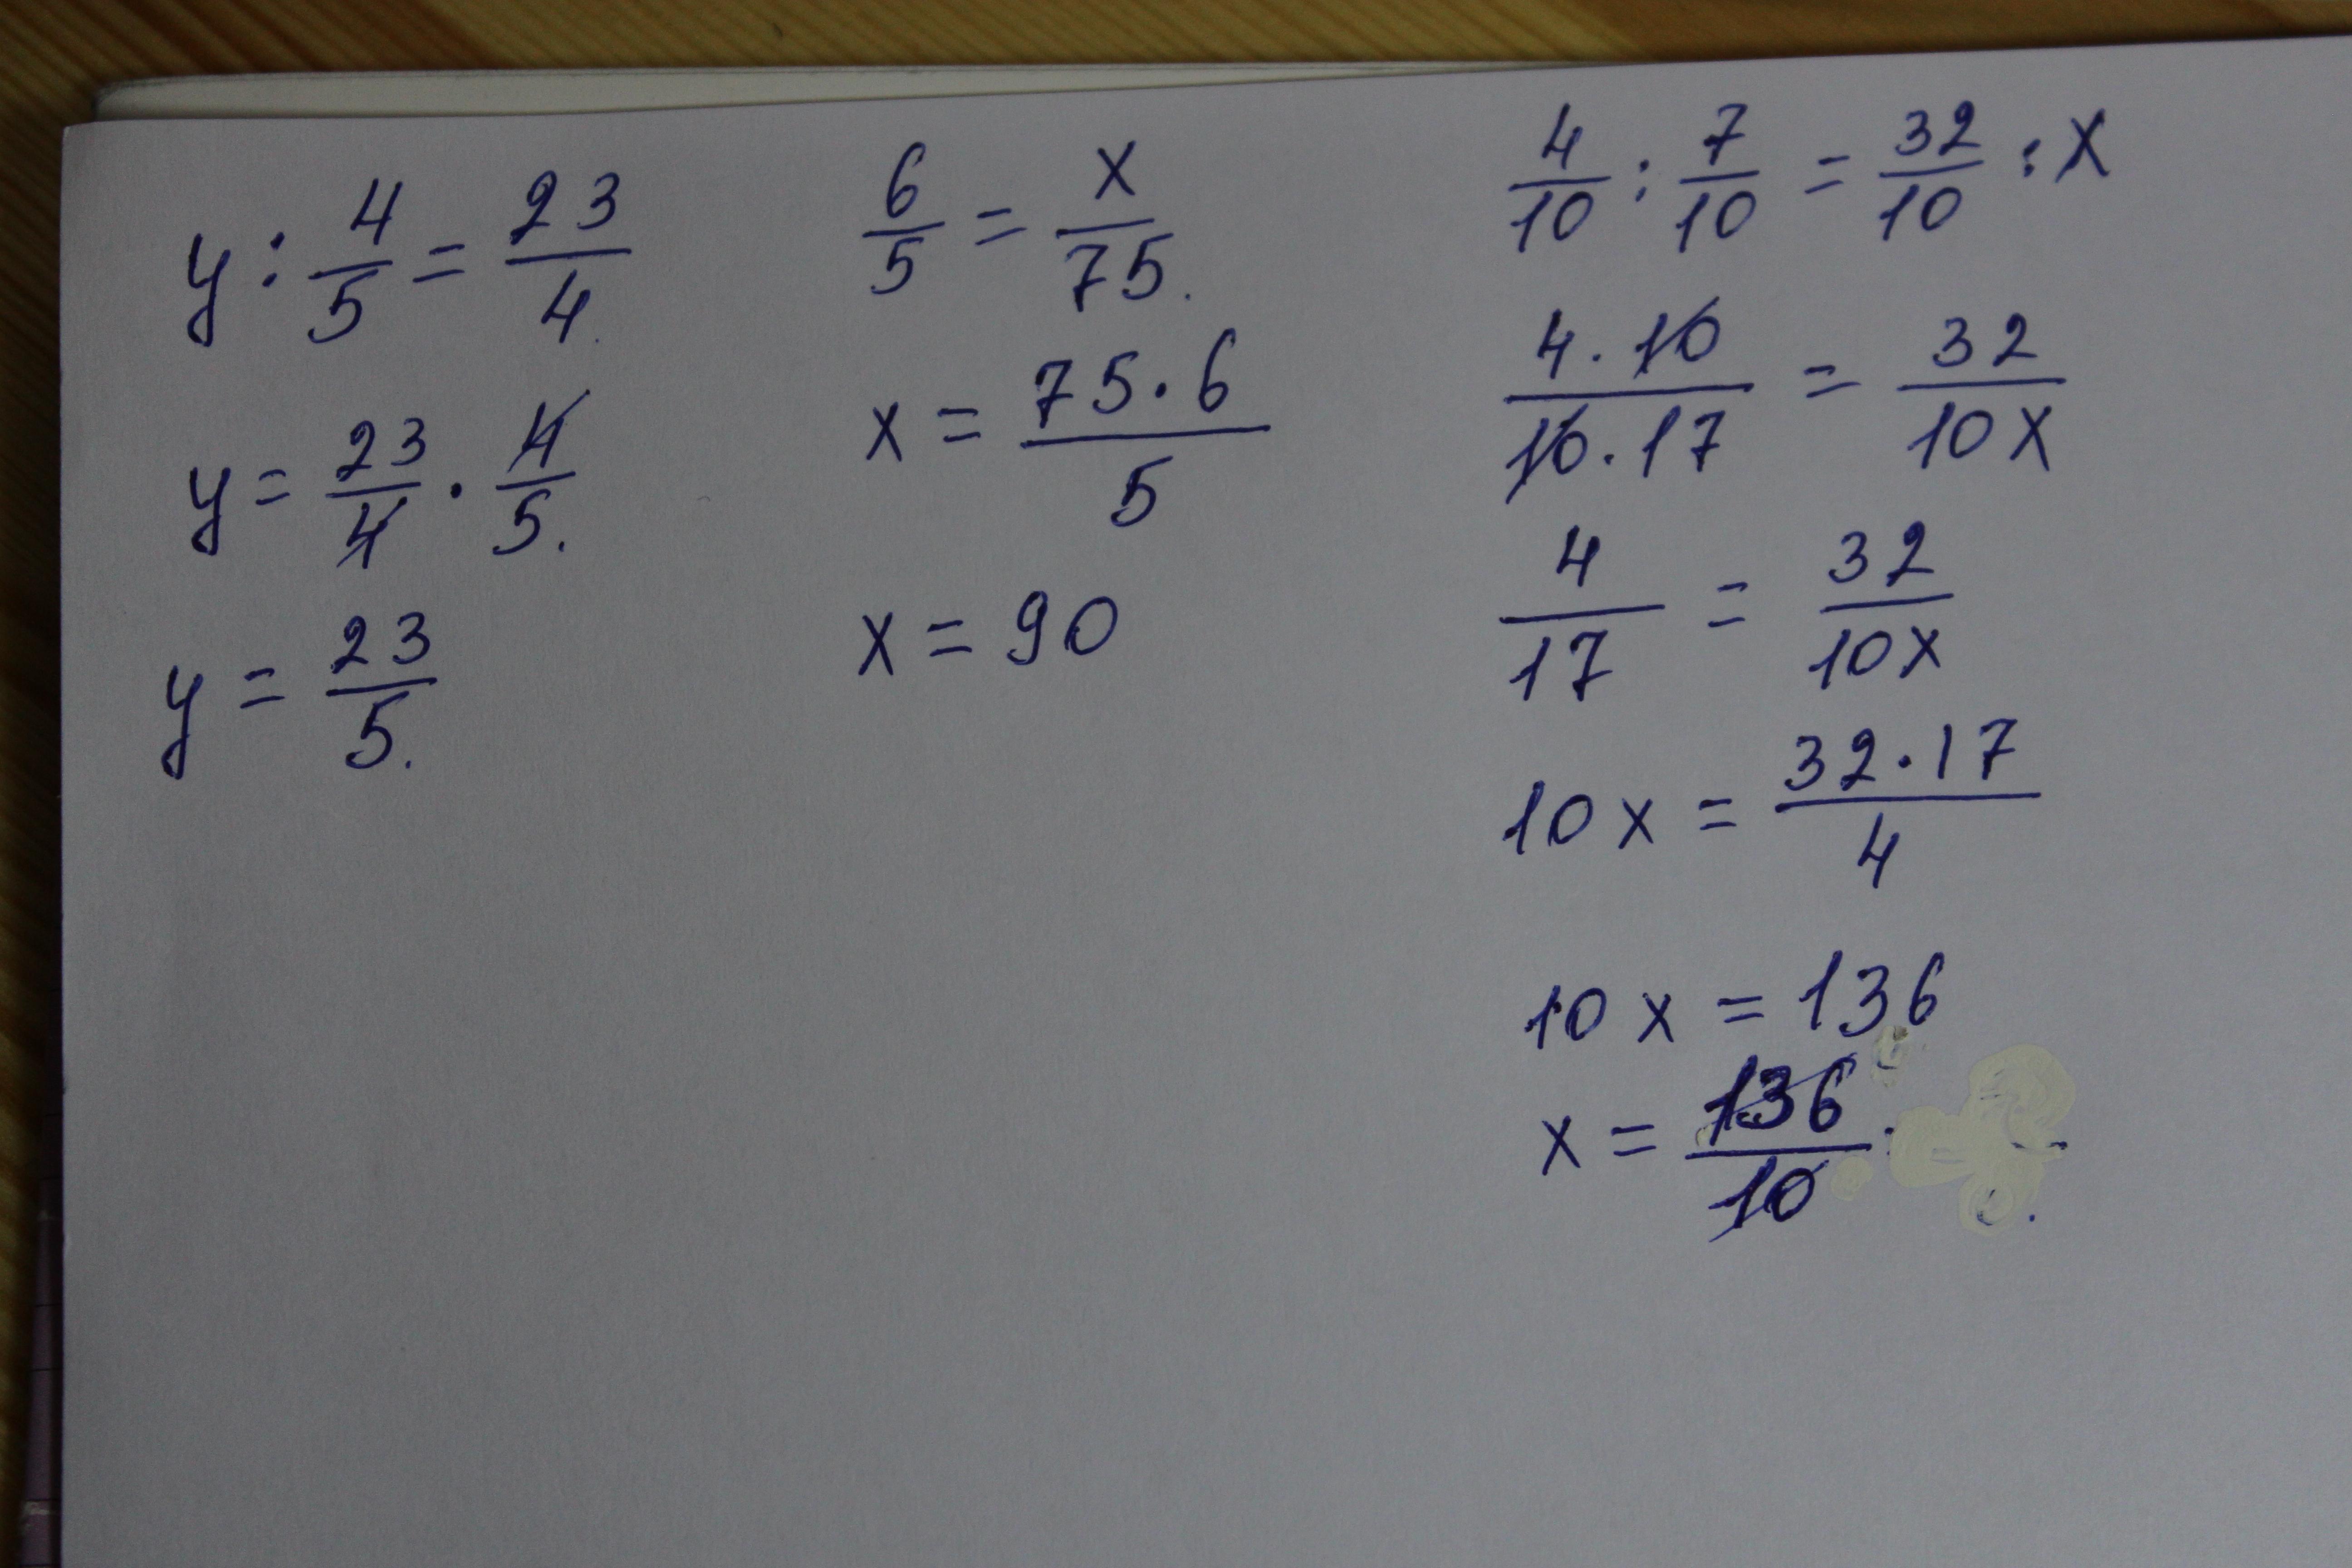 y : 4/5 = 23/4.
y = 23/4 · 4/5.
y = 23/5.
6/5 = x/75.
x = 75·6/5
x = 90
4/10 : 7/10 = 32/10 : x
4·10/10·17 = 32/10x
4/17 = 32/10x
10x = 32·17/4
10x = 136
x = 136/10